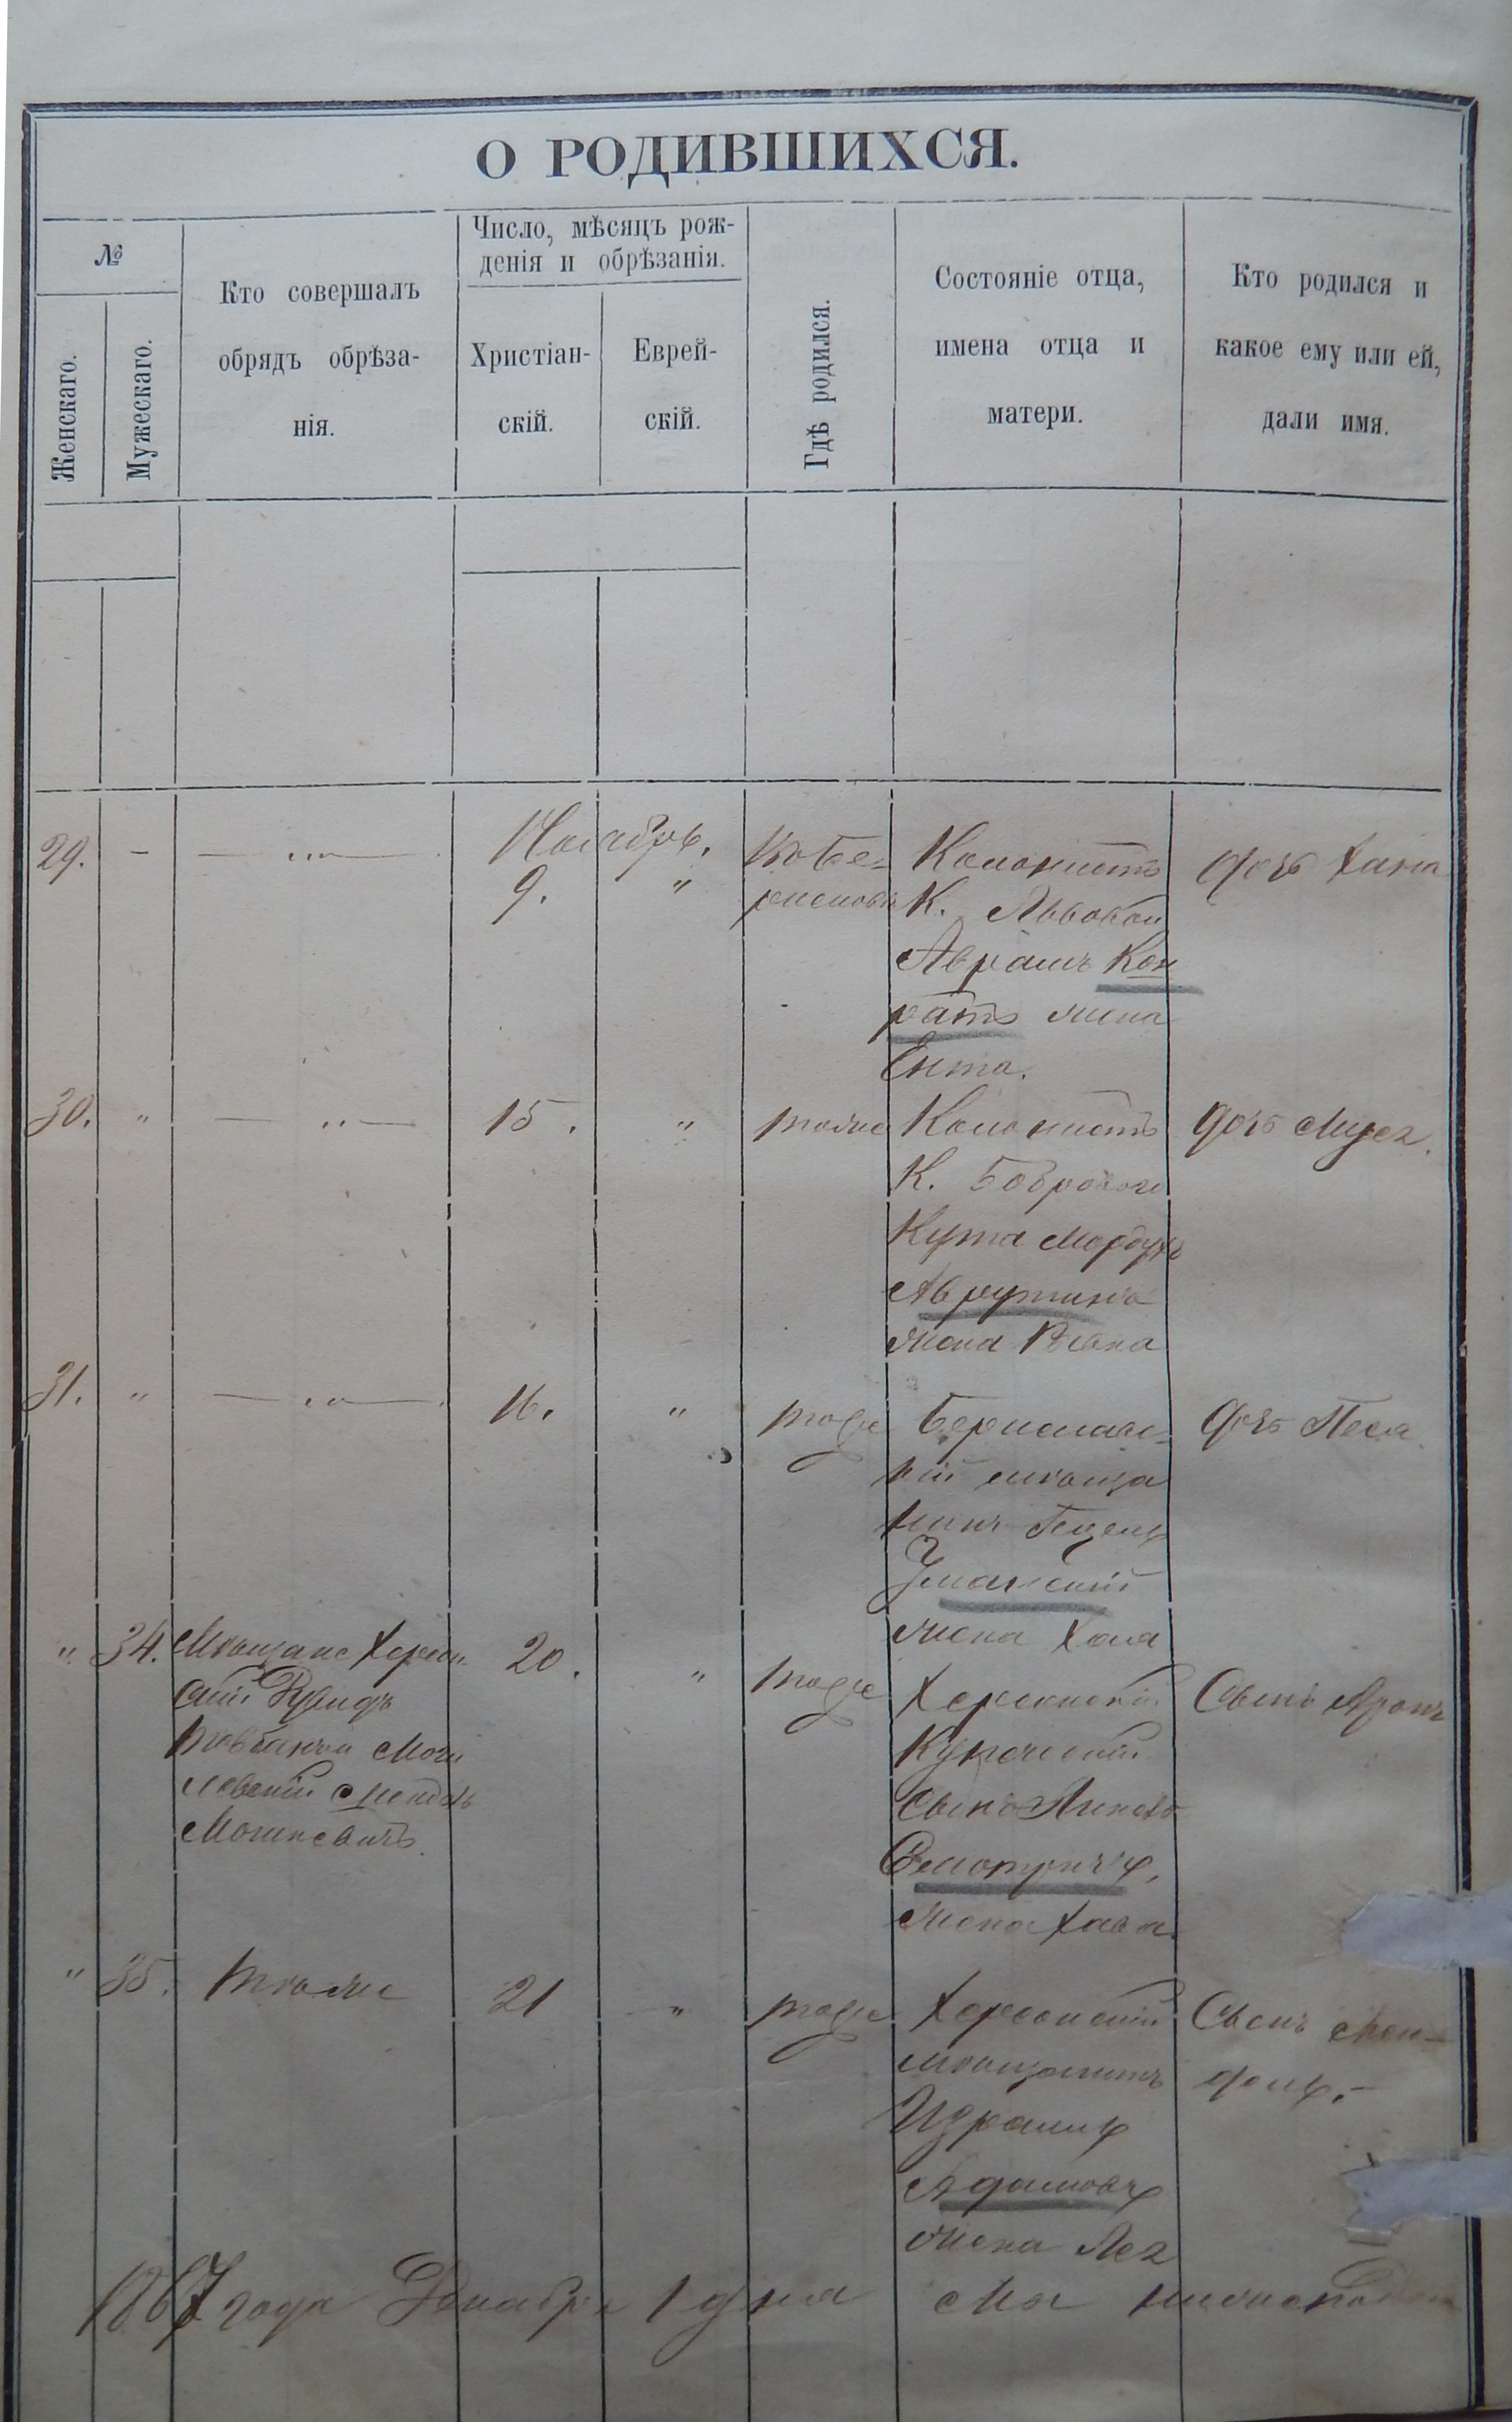 О РОДИВШИХСЯ.
№
Женскаго.
Мужескаго.
Кто совершалъ
обрядъ обрѣза-
нія.
Число, мѣсяцъ рож-
денія и обрѣзанія.
Христіан-
скій.
Еврей-
скій.
Гдѣ родился.
Состояніе отца,
имена отца и
матери.
Кто родился и
какое ему или ей,
дали имя.
Ноябрь.
29. - — „ — 9. „
въ Бе-
риславѣ
Колонистъ
К. Львовой
Аврамъ Кон
ратъ жена
Ента.
дочь Хана
30. „ — „ — 15. „ тоже
Колонистъ
К. Бобровой
Кута Мордухъ
Аврутинъ
жена Ривка
дочь
31. „ — „ — 16. „ тоже
Бериславс-
кій мѣща
нинъ
Уманскій
жена Хая
дочь Песя
„ 34. Мѣщане Херсон
скій
Могилевскій
Мошкевичъ.
20. „ тоже
Херсонскій
Купеческій
сынъ
жена Хава
Сынъ Аронъ
„ 35. тоже 21 „ тоже
Херсонскій
мѣщанинъ
Израиль
Адамовъ
жена Лея
Сынъ Мен-
дель.-
1867 года Декабря 1 дня Мы